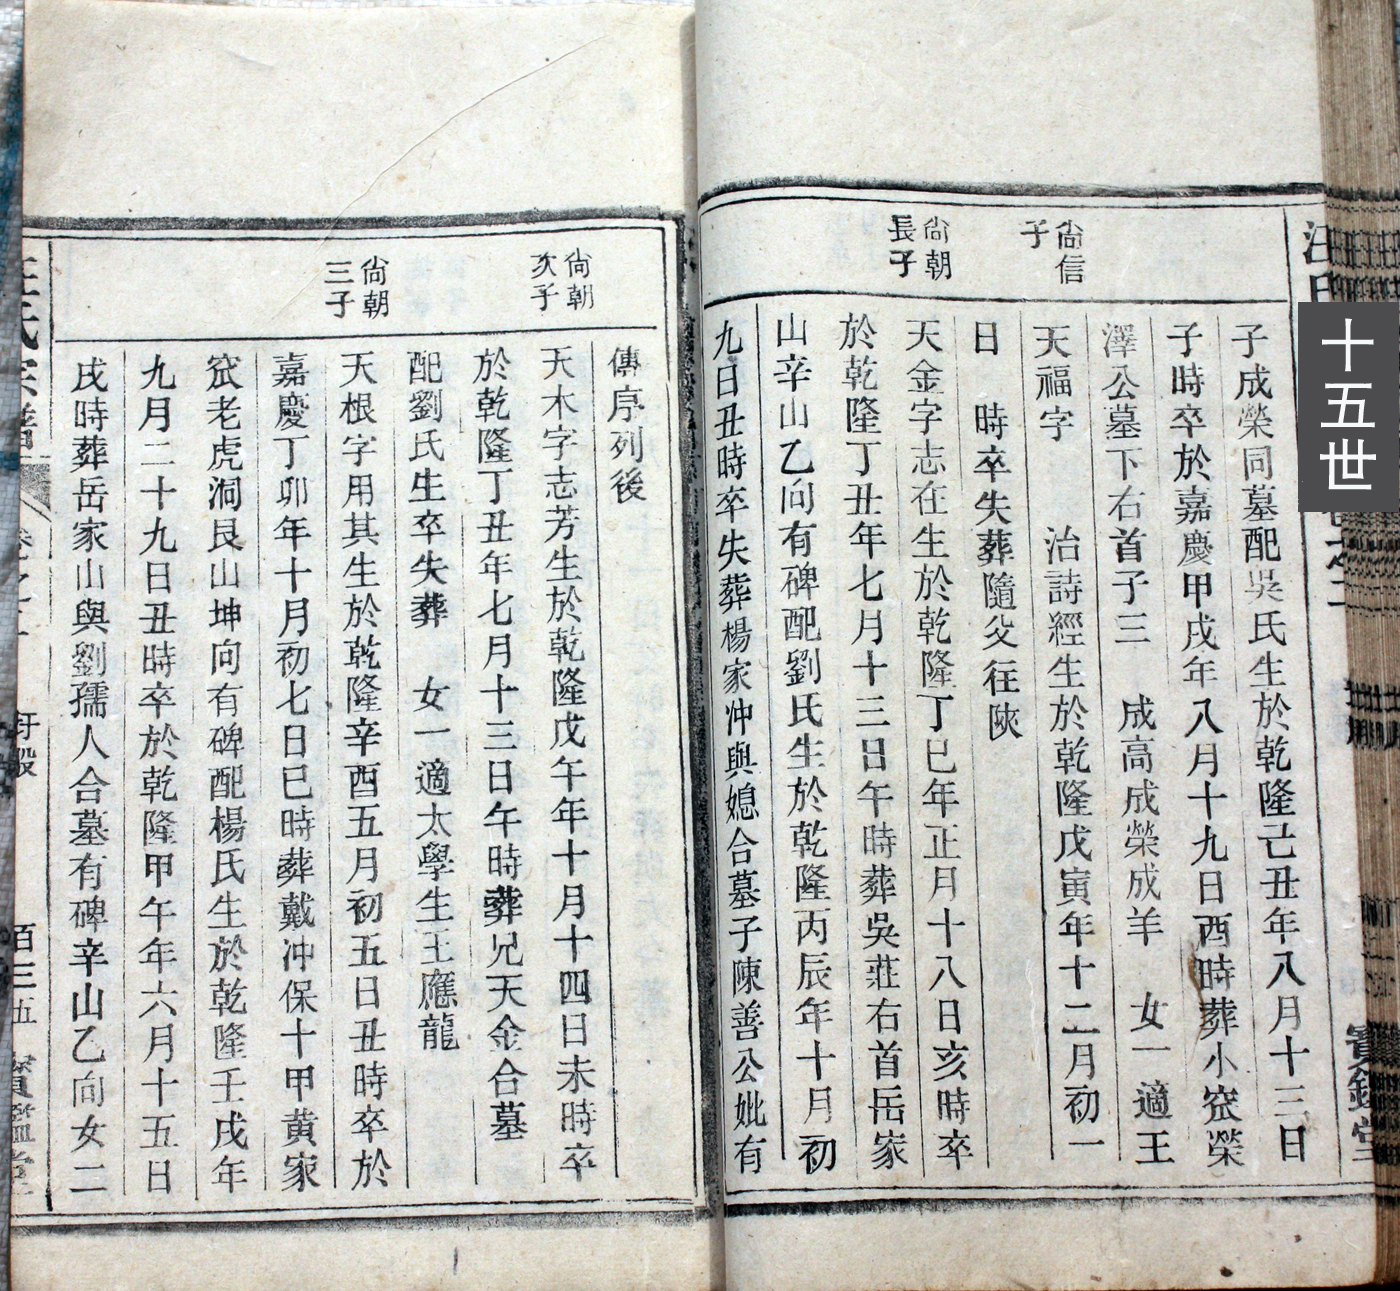 十五世
子成榮同墓配吳氏生於乾隆己丑年八月十三日
子時卒於嘉慶甲戌年八月十九日酉時葬小窊榮
澤公墓下右首子三 成高成榮成羊 女一適王
尙信
子
天福字 治詩經生於乾隆戊寅年十二月初一
日 時卒失葬隨父往陝
尙朝
長子
天金字志在生於乾隆丁巳年正月十八日亥時卒
於乾隆丁丑年七月十三日午時葬吳莊右首岳家
山辛山乙向有碑配劉氏生於乾隆丙辰年十月初
九日丑時卒失葬楊家冲與媳合墓子陳善公妣有
傳序列後
尙朝
次子
天木字志芳生於乾隆戊午年十月十四日未時卒
於乾隆丁丑年七月十三日午時葬兄天金合墓
配劉氏生卒失葬 女一適太學生王應龍
尙朝
三子
天根字用其生於乾隆辛酉五月初五日丑時卒於
嘉慶丁卯年十月初七日巳時葬戴冲保十甲黄家
窊老虎洞艮山坤向有碑配楊氏生於乾隆壬戌年
九月二十九日丑時卒於乾隆甲午年六月十五日
戌時葬岳家山與劉孺人合墓有碑辛山乙向女二